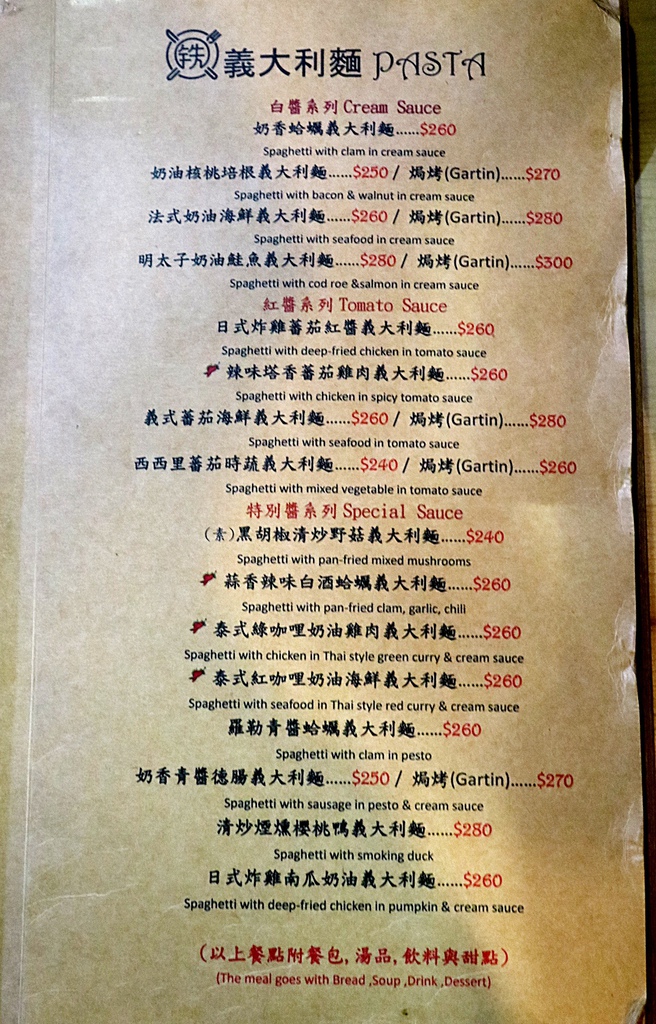 铁 義大利麵 PASTA
白醬系列 Cream Sauce
奶香蛤蠣義大利麵......$260
Spaghetti with clam in cream sauce
奶油核桃培根義大利麵......$250 / 焗烤(Gartin)......$270
Spaghetti with bacon & walnut in cream sauce
法式奶油海鮮義大利麵......$260 / 焗烤(Gartin)......$280
Spaghetti with seafood in cream sauce
明太子奶油鮭魚義大利麵......$280 / 焗烤(Gartin)......$300
Spaghetti with cod roe &salmon in cream sauce
紅醬系列 Tomato Sauce
日式炸雞蕃茄紅醬義大利麵......$260
Spaghetti with deep-fried chicken in tomato sauce
辣味塔香蕃茄雞肉義大利麵......$260
Spaghetti with chicken in spicy tomato sauce
義式蕃茄海鮮義大利麵......$260 / 焗烤(Gartin)......$280
Spaghetti with seafood in tomato sauce
西西里蕃茄時蔬義大利麵......$240 / 焗烤(Gartin)......$260
Spaghetti with mixed vegetable in tomato sauce
特別醬系列 Special Sauce
(素)黑胡椒清炒野菇義大利麵......$240
Spaghetti with pan-fried mixed mushrooms
蒜香辣味白酒蛤蠣義大利麵......$260
Spaghetti with pan-fried clam, garlic, chili
泰式綠咖哩奶油雞肉義大利麵......$260
Spaghetti with chicken in Thai style green curry & cream sauce
泰式紅咖哩奶油海鮮義大利麵......$260
Spaghetti with seafood in Thai style red curry & cream sauce
羅勒青醬蛤蠣義大利麵......$260
Spaghetti with clam in pesto
奶香青醬德腸義大利麵......$250 / 焗烤(Gartin)......$270
Spaghetti with sausage in pesto & cream sauce
清炒煙燻櫻桃鴨義大利麵......$280
Spaghetti with smoking duck
日式炸雞南瓜奶油義大利麵......$260
Spaghetti with deep-fried chicken in pumpkin & cream sauce
(以上餐點附餐包, 湯品, 飲料與甜點)
(The meal goes with Bread ,Soup ,Drink ,Dessert)